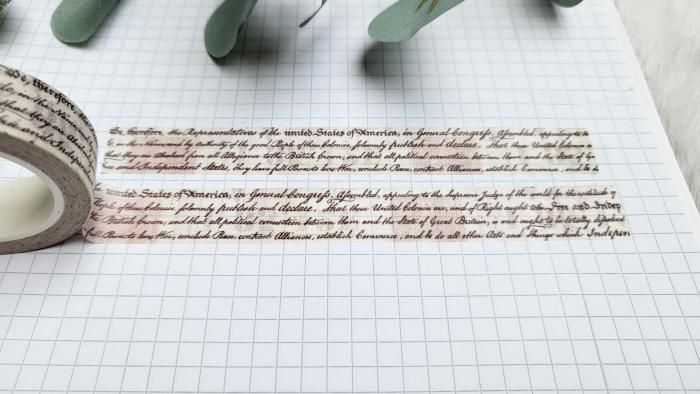 We, therefore, m
We, therefore, the Representatives of the united States of America, in General Congress, Assembled, appealing to
in the Name and by authority of the good People of these Colonies, solemnly publish and declare, That these United Colonies a
that they are Absolved from all Allegiance to the British Crown, and that all political connection between them and the State of G
and Independent States, they have full Power to levy War, conclude Peace, contract Alliances, establish Commerce, and to
united States of America, in General Congress, Assembled, appealing to the Supreme Judge of the world for the rectitude of
People of these Colonies, solemnly publish and declare, That these United Colonies are, and of Right ought to be Free and Indep
British Crown, and that all political connection between them and the State of Great Britain, is and ought to be totally dissolved
full Power to levy War, conclude Peace, contract Alliances, establish Commerce, and to do all other Acts and Things which Indepen